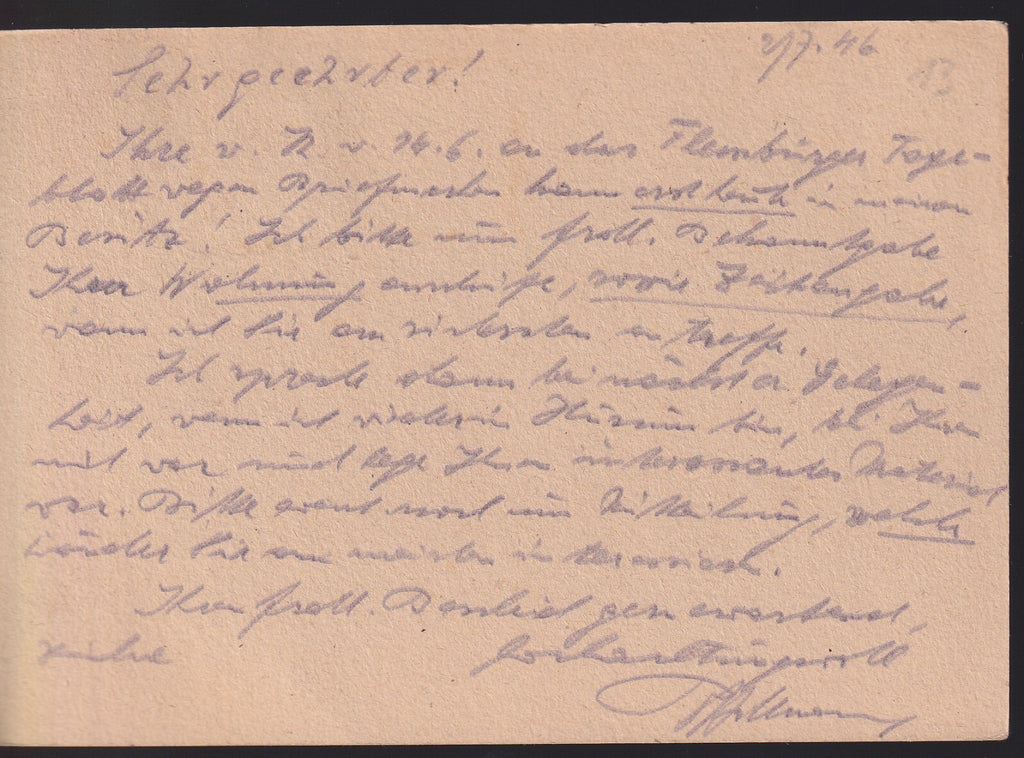 2/7.46
13
Sehr geehrter!
Ihre v. N. v. 14.6. an das Flensburger Tage-
blatt wegen Briefmarken kam erst heute in meinen
Besitz! Ich bitte um frdl. Bekanntgabe
Ihrer Wohnung anschrift, sowie Zeitangabe,
wann ich Sie am sichersten an treffe.
Ich sprech dann bei nächster Gelegen-
heit, wenn ich wieder in Husum bin, bei Ihnen
mit vor und lege Ihnen interessantes Material
vor. Bitte auch noch um Mitteilung, welche
Länder Sie am meisten interessieren.
Ihren frdl. Bescheid gern erwartend,
hochachtungsvoll